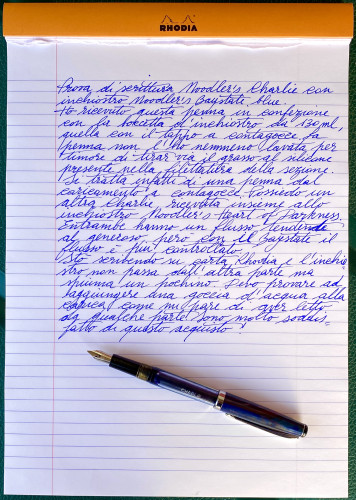 RHODIA
Prova di scrittura Noodler's Charlie con
inchiostro Noodler's Baystate blue.
Ho ricevuto questa penna in confezione
con la boccetta d'inchiostro da 130 ml,
quella con il tappo a contagocce. La
penna non l'ho nemmeno lavata per
timore di tirar via il grasso al silicone
presente nella filettatura della sezione.
Si tratta infatti di una penna da
caricamento a contagocce. Possiedo un
altra Charlie, ricevuta insieme allo
inchiostro Noodler's Heart of Darkness.
Entrambe hanno un flusso tendente
al generoso, però con il Baystate il
flusso è più controllato.
Sto scrivendo su carta Rhodia e l'inchio
stro non passa dall'altra parte ma
spiuma un pochino. Devo provare ad
aggiungere una goccia d'acqua alla
carica come mi pare di aver letto
da qualche parte. Sono molto soddis=
fatto di questo acquisto.